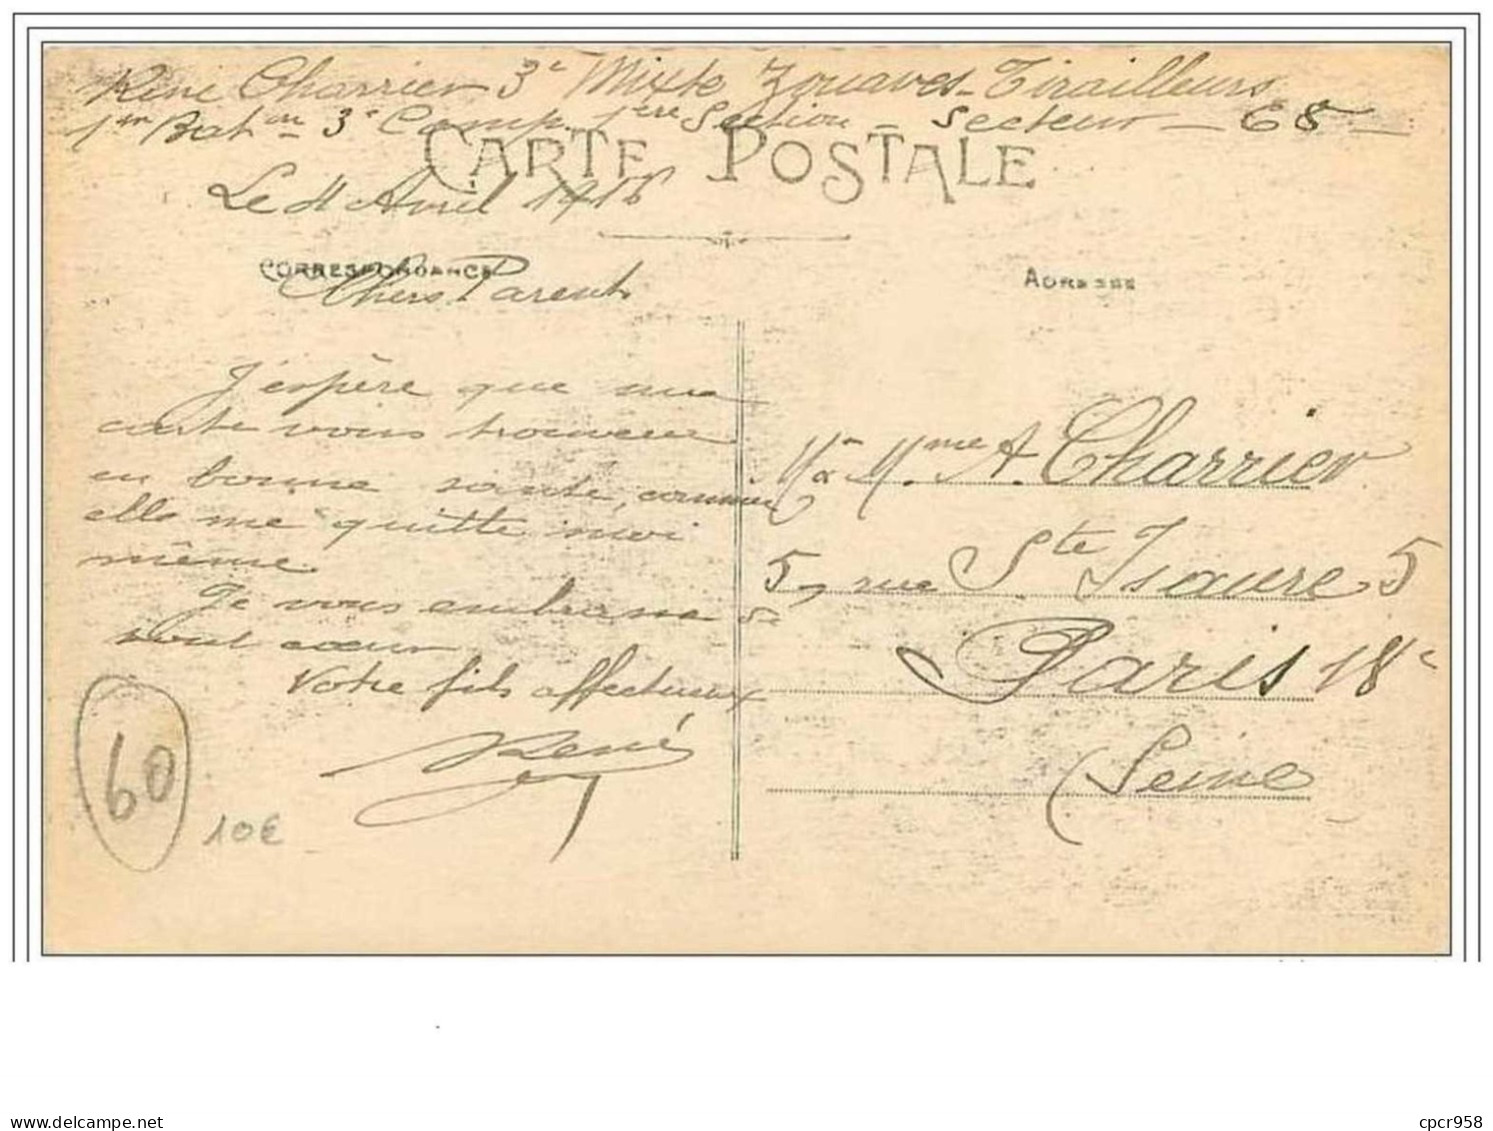 René Charrier 3e Mixte Zouaves-Tirailleurs
1er Bat on 3e Comp. 1ère Section - Secteur - 68 -
CARTE POSTALE
Le 11 Avril 1916
CORRESPONDANCE
Chers Parents
J'espère que ma
carte vous trouvera
en bonne santé, comme
elle me quitte moi
même.
Je vous embrasse de
tout coeur
Votre fils affectueux
René
60
10€
ADRESSE
Mr & Mme A. Charrier
5, rue Ste Isaure 5
Paris 18e
Seine
cpcr958